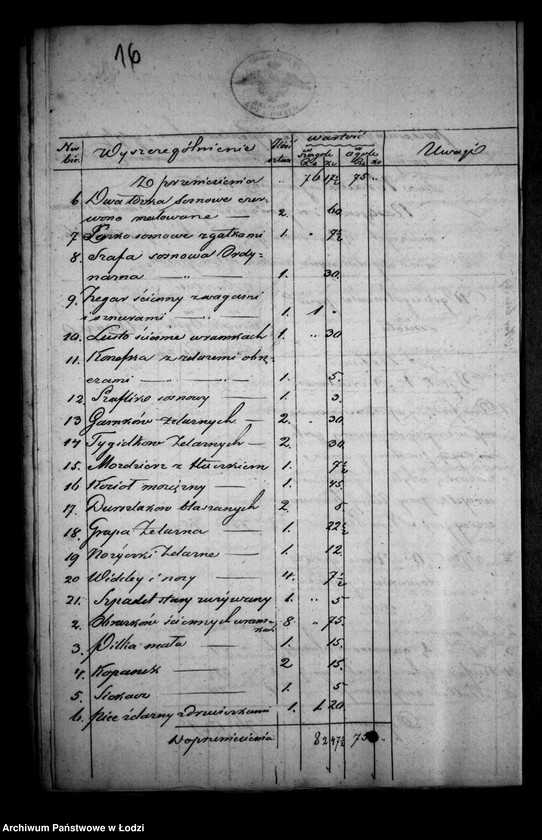 16
No bież. Wyszczególnienie Ilość sztuk wartość Uwagi
w szczególe w ogóle
Rs ko Rs ko
Z przeniesienia " 76 17½ 75 "
6 Dwa łóżka sosnowe czer-
wono malowane — 2. 60.
7 Łóżko sosnowe z gałkami 1. " 7½
8. Szafa sosnowa Ordy-
narna — " — 1. 30.
9. Zegar ścienny z wagami
i sznurami — " — 1. 1 "
10. Lustro ścienne w ramkach 1. " 30
11. Konefka z żelaznemi obrę-
czami — " — " — 1. 5.
12 Szaflik sosnowy — 1. 3.
13 Garnków żelaznych — 2. " 30.
14 Tygielków żelaznych — 2. 30.
15. Moździerz z tłuczkiem 1. 7½
16 Kocioł mosiężny — 1. 45.
17. Durszlaków blaszanych 2. 5.
18. Grapa żelazna — 1. 22½
19 Nożyczki żelazne — 1. 12
20 Widelcy i noży — 4. 7½
21. Szpadel stary zużywany 1. " 5
2. Obrazków ściennych w ram-
kach 8. " 75.
3. Piłka mała — 1. 15.
4. Kopanek — 2 15.
5. Siekacz — 1. 5
6. Piec żelazny z drzwiczkami 1. 1. 20
Do przeniesienia 82 47½ 75
Archiwum Państwowe w Łodzi